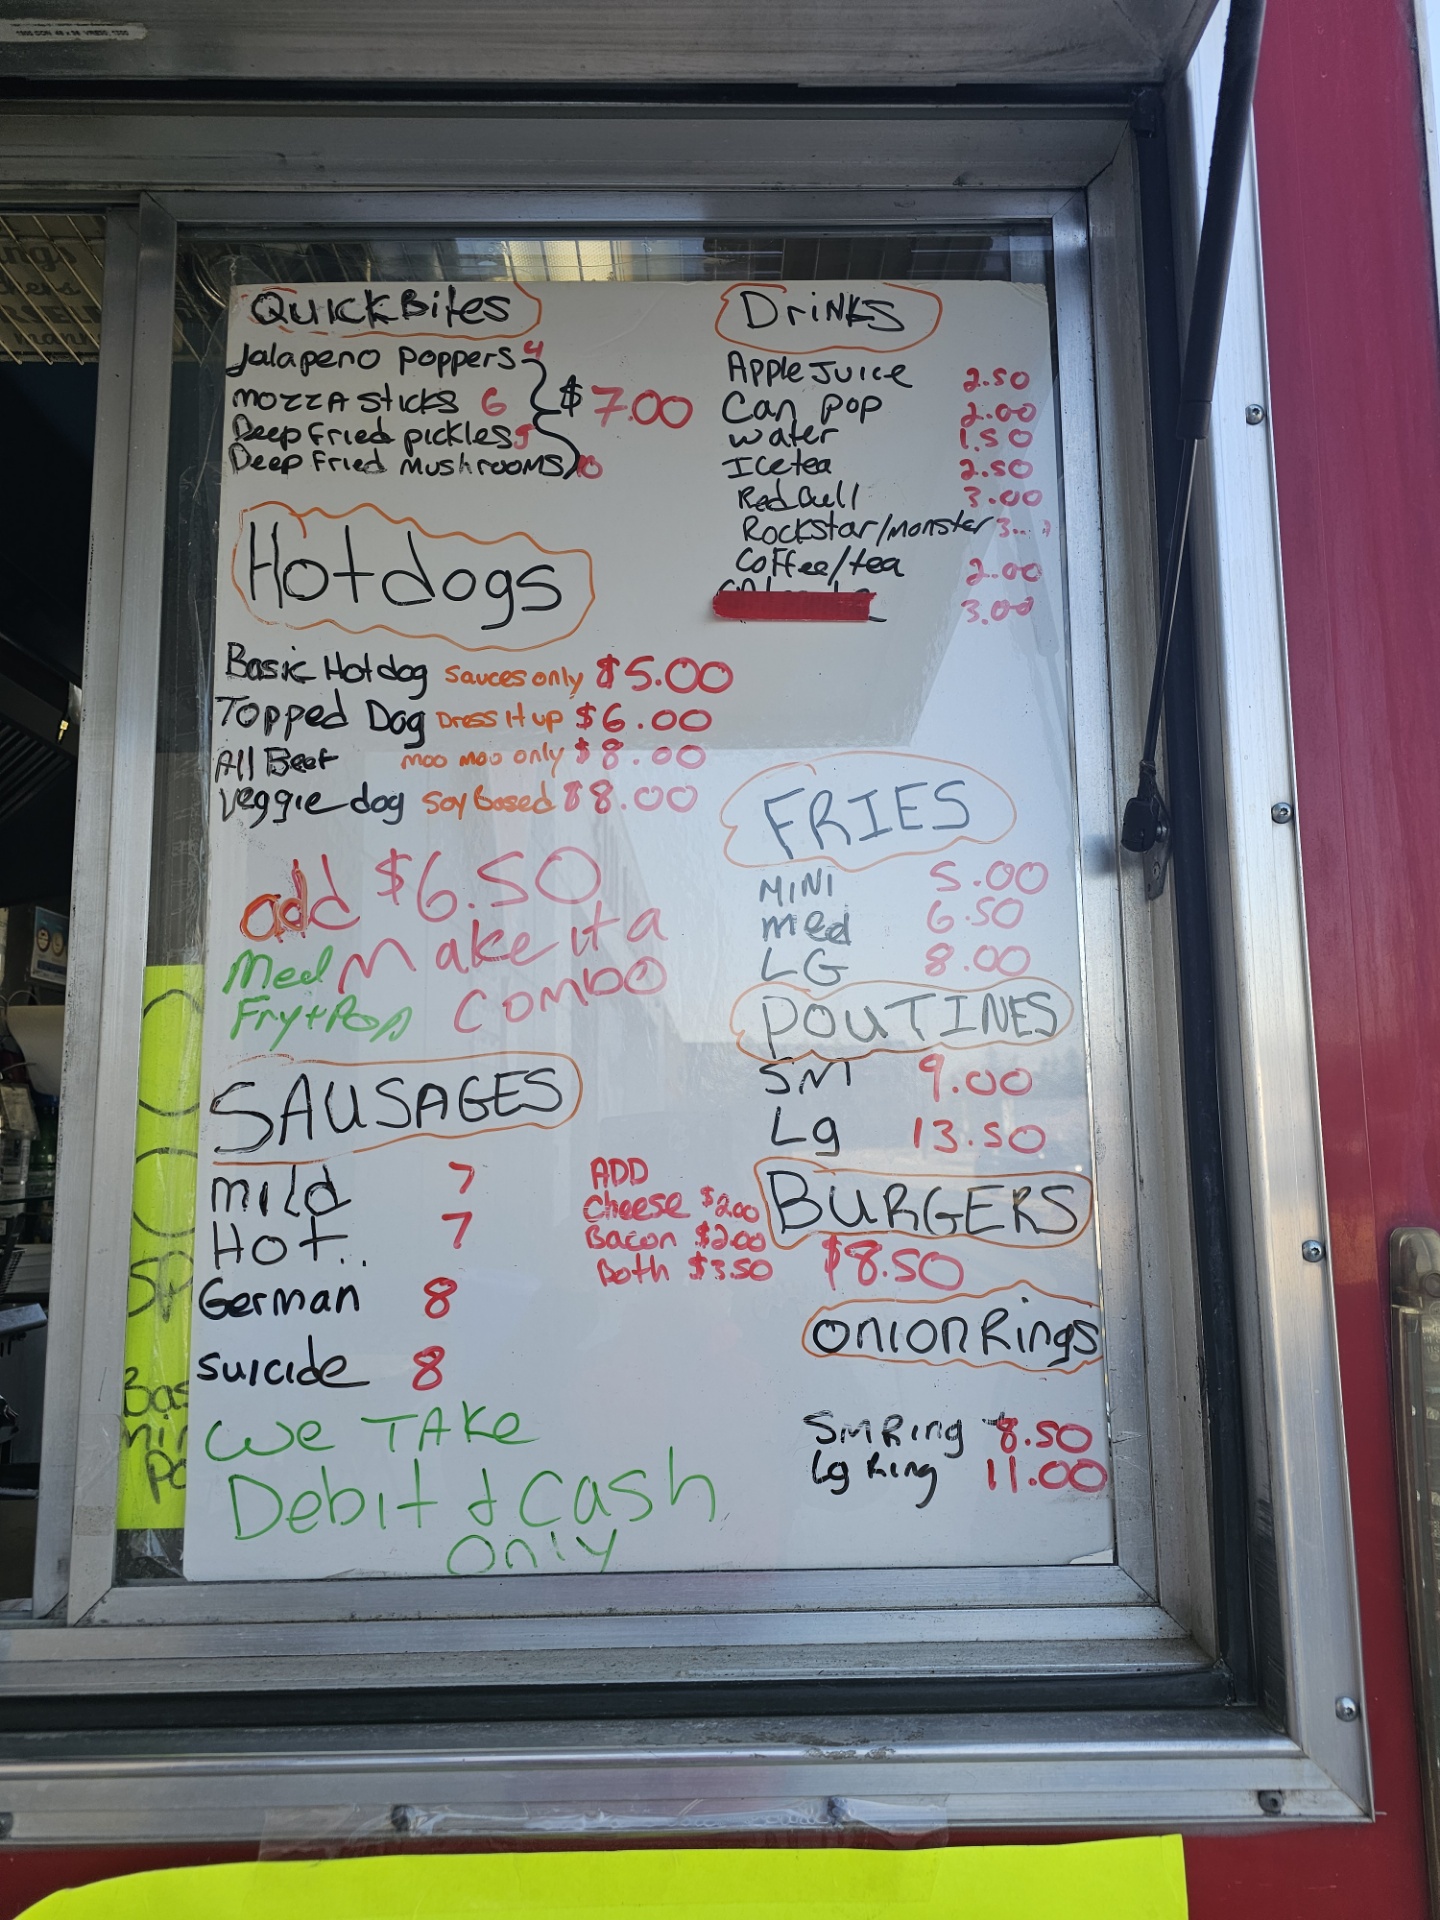 QuickBites
Jalapeno poppers 4
mozzA sticks 6
$7.00
Deep Fried pickles 5
Deep Fried mushrooms 10
Drinks
Apple Juice 2.50
Can pop 2.00
water 1.50
Icetea 2.50
Red Bull 3.00
Rockstar/monster 3
Coffee/tea 2.00
3.00
Hotdogs
Basic Hotdog Sauces only $5.00
Topped Dog Dress It up $6.00
All Beef moo moo only $8.00
Veggie dog Soy Based $8.00
add $6.50
Make it a
Combo
Med
Fry+Pop
FRIES
MINI 5.00
med 6.50
LG 8.00
POUTINES
SM 9.00
Lg 13.50
SAUSAGES
mild 7
Hot.. 7
German 8
suicide 8
ADD
Cheese $2.00
Bacon $2.00
Both $3.50
BURGERS
$8.50
Onion Rings
SM Ring 8.50
Lg Ring 11.00
We TAKe
Debit & Cash
Only
SP
Bas